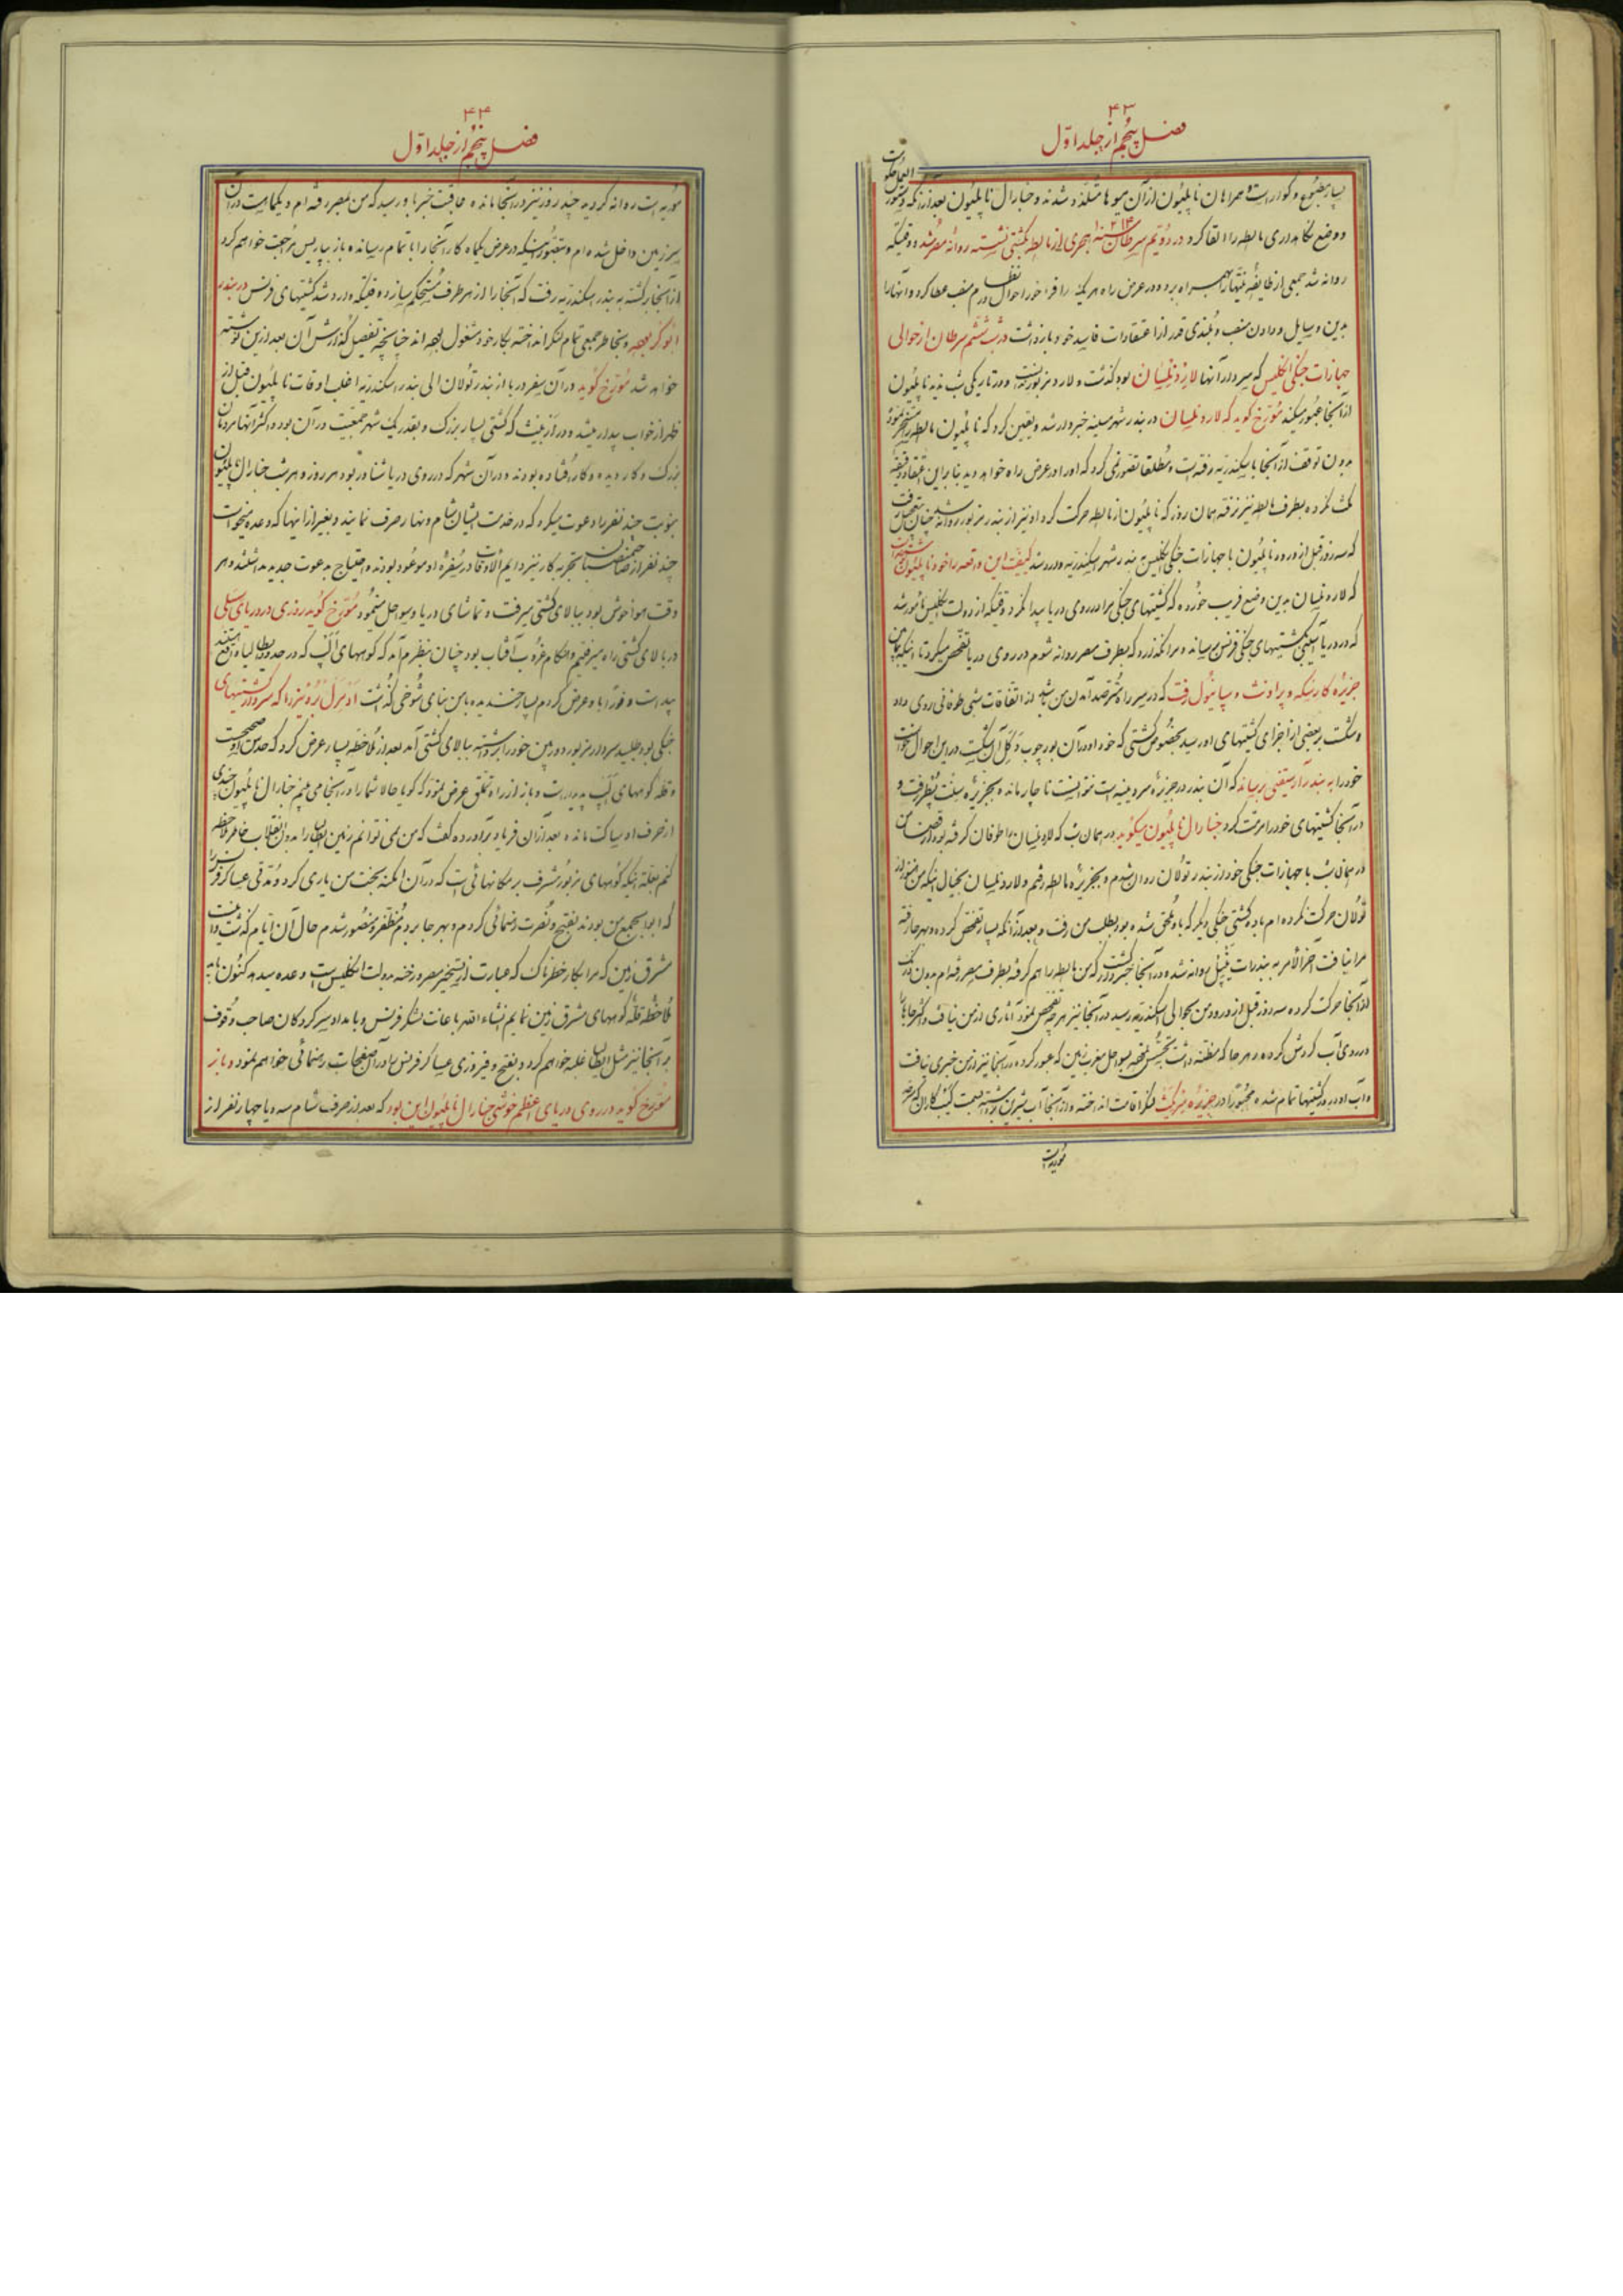 ۴۳
فصل پنجم از جلد اول
بسیار مطبوع و گوارا است و همراهان ناپلیون از آن میوها متلذذ شدند و جنارال ناپلیون بعد از آنکه دستور العمل حکومت
و وضع نگاهداری مالطه را القا کرد در دویم سرطان سنه ۱۲۱۳ هجری از مالطه بکشتی نشسته روانه مصر شد و وقتیکه
روانه شد جمعی از طایفه همراه برد و در عرض راه هر یک را فراخور احوال در نظام منصب عطا کرد و آنها را
بدین وسایل و دادن منصب و بلندی قدر از اعتقادات فاسد خود باز داشت در شب ششم سرطان از حوالی
جهازات جنگی انگلیس که سردار آنها لارد نلسان بود گذشت و لارد مزبور در تاریکی شب ندید ناپلیون
از آنجا عبور میکند مورخ گوید که لارد نلسان در بندر شهر مسینه خبردار شد و یقین کرد که ناپلیون مالطه را مسخر نموده
بدون توقف از آنجا باسکندریه رفته است و مطلقا تصور نمی کرد که او را در عرض راه خواهد دید بنابراین
مکث نکرده بطرف مالطه نیز نرفته همان روز که ناپلیون از مالطه حرکت کرد او نیز از بندر مزبور روانه شد چنان
که سه روز قبل از ورود ناپلیون با جهازات جنگی انگلیس بندر شهر اسکندریه وارد شد کیفیت این واقعه را خود ناپلیون
که لارد نلسان بدین وضع فریب خورده که کشتیهای جنگی مرا در روی دریا پیدا نکرد و وقتیکه از دولت انگلیس مامور شد
که در دریا آسیبی بکشتیهای جنگی فرنس برساند و مرا نگذارد که بطرف مصر روانه شوم در روی دریا تفحص میکرد تا اینکه
جزیره کارسیکه و پراونث و سپانیول رفت که در سر راه مترصد آمدن من باشد از اتفاقات شبی طوفانی روی داد
و شکست بر بعضی از اجزای کشتیهای او رسید بخصوص کشتی که خود او در آن بود چوب دکل آن شکست در این احوال خواست
خود را به بندر برساند که آن بندر در جزیره سردینیه است نتوانست ناچار مانده بجزیره سنت پطر رفت و
در آنجا کشتیهای خود را مرمت کرد جنارال ناپلیون میگوید در همان شب که لارد نلسان را طوفان گرفته بود
در همان شب با جهازات جنگی خود از بندر تولان روان شدم و بجزیره مالطه رفتم و لارد نلسان بخیال اینکه من هنوز از
تولان حرکت نکرده ام با ده کشتی جنگی دیگر که باو ملحق شده بود بطلب من رفت و بعد از آنکه بسیار تفحص کرده و بهر جا رفته
مرا نیافت آخرالامر به بندرات نیپل روانه شده در آنجا خبردار گشت که من مالطه را هم گرفته بطرف مصر رفته ام بدون درنگ
از آنجا حرکت کرده سه روز قبل از ورود من بحوالی اسکندریه رسید در آنجا نیز هر چه تفحص نمود آثاری از من نیافت
در روی آب گردش کرده و هر جا که مظنه داشت تجسس نموده بسواحل مغرب زمین که عبور کرده در آنجا نیز از من خبری نیافت
و آب و آذوقه در کشتیها تمام شده مجبورا در جزیره لنگر اقامت انداخته و از آنجا آب شیرین برداشته
موریه است
۴۴
فصل پنجم از جلد اول
موریه است روانه گردید چند روز نیز در آنجا مانده عاقبت خبر باو رسید که من بمصر رفته ام و یکماه است در آن
سرزمین داخل شده ام و بتصور اینکه در عرض یکماه کار آنجا را با تمام رسانده باز بپاریس مراجعت خواهم کرد
از آنجا برگشته به بندر اسکندریه رفت که آنجا را از هر طرف مستحکم سازد وقتیکه وارد شد کشتیهای فرنس در بندر
ابوکر بود و بخاطر جمعی تمام لنگر انداخته بکار خود مشغول بودند چنانچه تفصیل گذارش آن بعد از این نوشته
خواهد شد مورخ گوید در آن سفر دریا از بندر تولان الی بندر اسکندریه اغلب اوقات ناپلیون قبل از
ظهر از خواب بیدار میشد و در آن کشتی بسیار بزرگ و بقدر یک شهر جمعیت در آن بود و اکثر آنها مردمان
بزرگ و کار دیده و کار افتاده بودند و در آن شهر که در روی دریا شناور بود هر روز و هر شب جنارال ناپلیون
بنوبت چند نفر را دعوت میکرد که در خدمت ایشان شام و نهار صرف نمایند و بغیر از اینها که وعده میخواست
چند نفر از صاحبمنصبان با تجربه کار نیز دایم الاوقات در سفره او موعود بودند و احتیاج به دعوت جدید نداشتند و هر
وقت هوا خوش بود ببالای کشتی میرفت و تماشای دریا و سواحل مینمود مورخ گوید روزی در دریای سلی
در بالای کشتی راه میرفتیم و هنگام غروب آفتاب بود چنان بنظرم آمد که کوههای آلپ که در حدود ایطالیا واقع هستند
پیداست و فورا باو عرض کردم بسیار خندیده با من بنای شوخی گذاشت ادمرل بروئیز را که سردار کشتیهای
جنگی بود طلبید سردار مزبور دوربین خود را برداشته ببالای کشتی آمد بعد از ملاحظه بسیار عرض کرد که حدس او صحیح است
و قله کوههای آلپ پدیدار است و باز از راه تملق عرض نمود که گویا حالا شما را در آنجا می بینم جنارال ناپلیون
از حرف او ساکت مانده بعد از آن فریاد برآورده گفت که من نمی توانم زمین ایطالیا را بدون انقلاب خاطر ملاحظه
کنم بعلت اینکه کوههای مزبور مشرف بر مکانهائی است که در آن امکنه بخت من یاری کرد و مدتی عساکر فرنس را
که ابواب جمع من بودند بفتح و نصرت رهنمائی کردم و بهر جا بردم مظفر و منصور شدم حال آن ایام گذشت و
مشرق زمین که مرا بکار خطرناک که عبارت از تسخیر مصر و رخنه بدولت انگلیس است وعده میدهد کنون باید
ملاحظه قله کوههای مشرق زمین نمایم انشاء الله باعانت لشکر فرنس و بامداد سرکردگان صاحب وقوف
در آنجا نیز مثل ایطالیا غلبه خواهم کرد و بفتح و فیروزی عساکر فرنس را در آن صفحات رهنمائی خواهم نمود و باز
مورخ گوید در روی دریای اعظم خوشی جنارال ناپلیون این بود که بعد از صرف شام سه و یا چهار نفر از